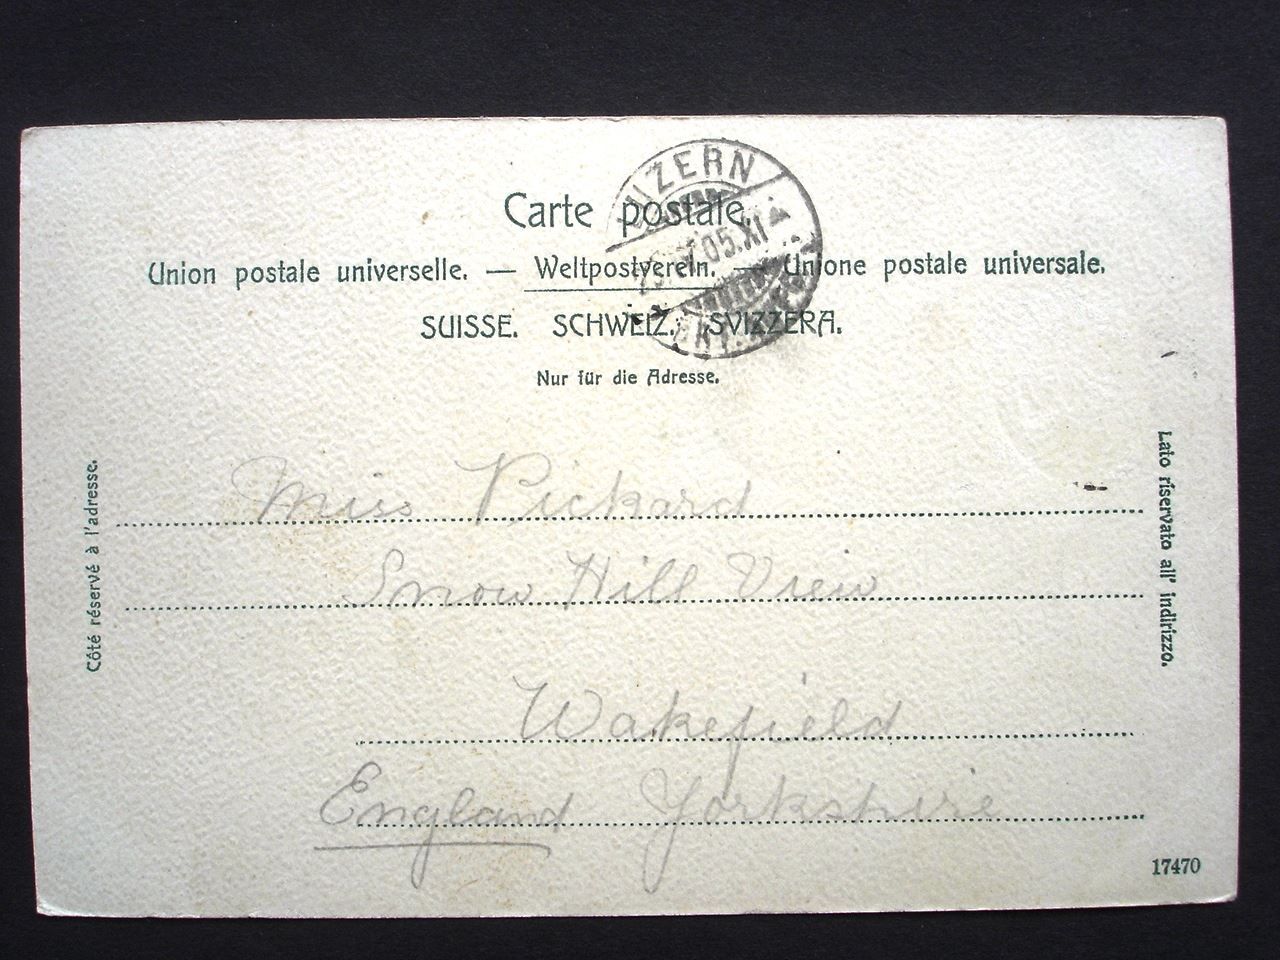 LUZERN
Carte postale.
05.XI
Union postale universelle. — Weltpostverein. — Unione postale universale.
SUISSE. SCHWEIZ. SVIZZERA.
Nur für die Adresse.
Côté réservé à l'adresse.
Lato riservato all' indirizzo.
Miss Pickard
Snow Hill View
Wakefield
England Yorkshire
17470